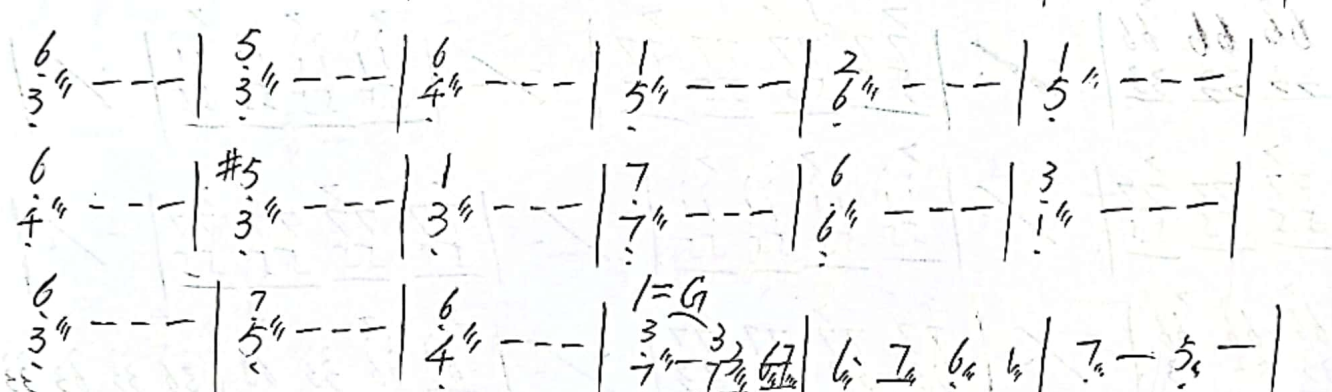 6̣/3̣〃 - - - | 5̣/3̣〃 - - - | 6̣/4̣〃 - - - | 1/5̣〃 - - - | 2/6̣〃 - - - | 1/5̣〃 - - - |
6̣/4̣〃 - - - | #5̣/3̣〃 - - - | 1/3̣〃 - - - | 7̣/7̣〃 - - - | 6̣/6̣〃 - - - | 3/1̣〃 - - - |
6̣/3̣〃 - - - | 7̣/5̣〃 - - - | 6̣/4̣〃 - - - | 1=G 3/7̣〃 - 3/7̣ 3 67 | 6· 7 6 1 | 7̣ - 5̣ - |